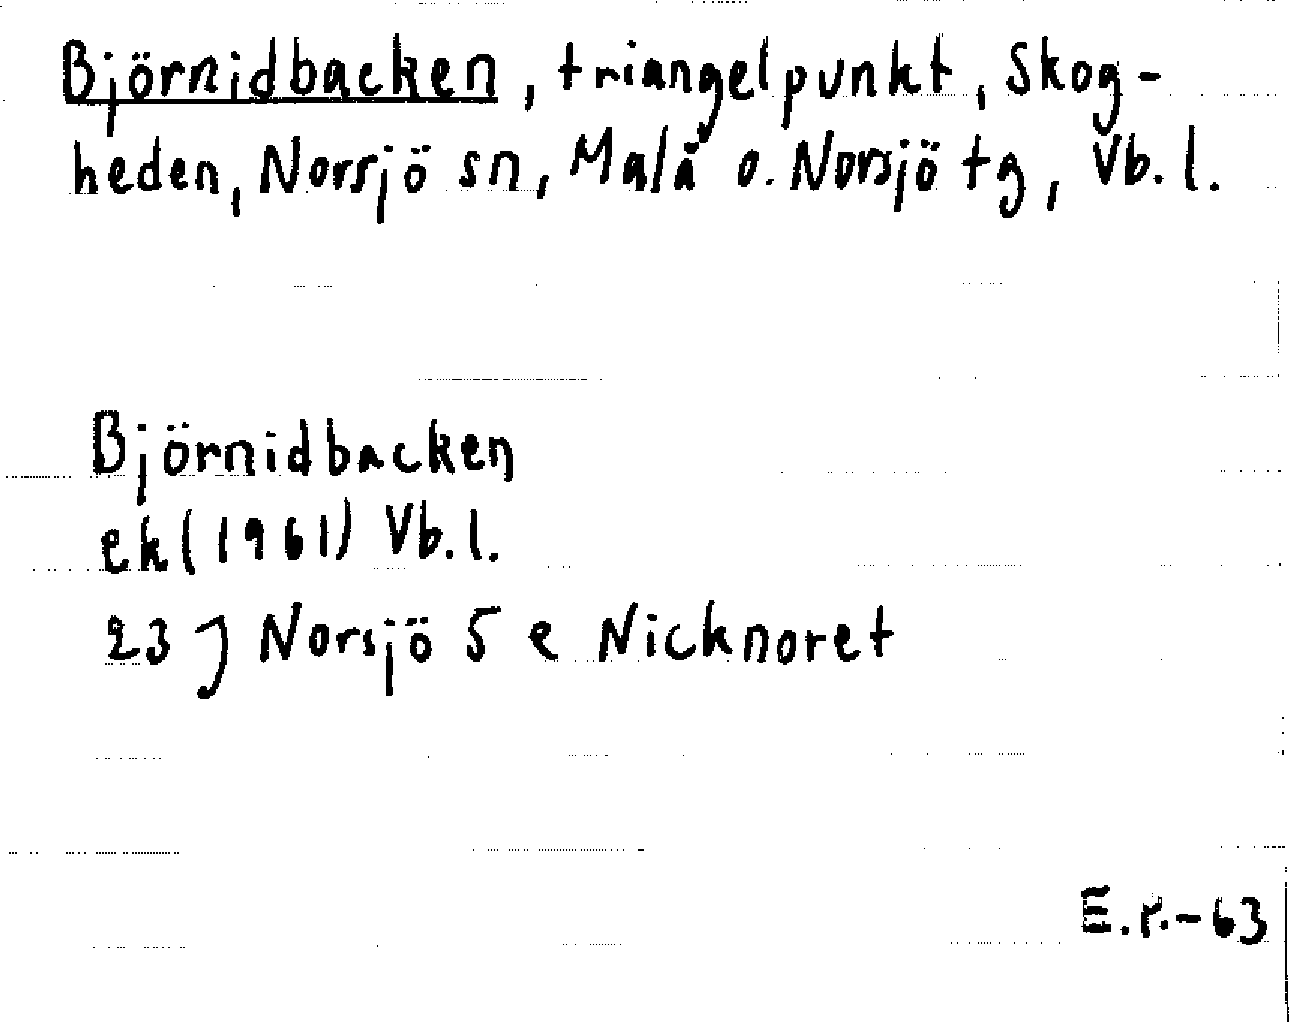 Björnidbacken, triangelpunkt, Skog-
heden, Norsjö sn, Malå o. Norsjö tg, Vb. l.
Björnidbacken
ek (1961) Vb. l.
23 J Norsjö 5 e Nicknoret
E.P.-63